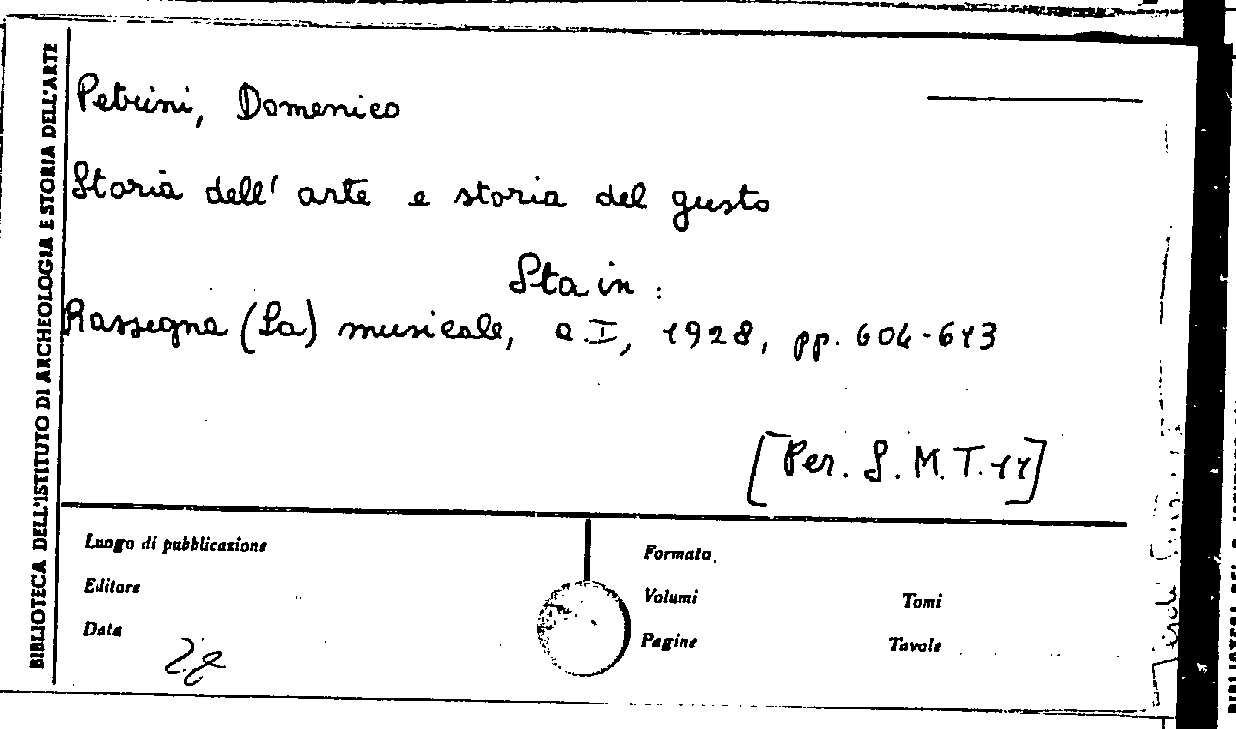 BIBLIOTECA DELL'ISTITUTO DI ARCHEOLOGIA E STORIA DELL'ARTE
Petrini, Domenico
Storia dell'arte e storia del gusto
Sta in:
Rassegna (La) musicale, a I, 1928, pp. 604-613
[Per. S. M. T. 11]
Luogo di pubblicazione
Editore
Data
28
Formato
Volumi
Tomi
Pagine
Tavole